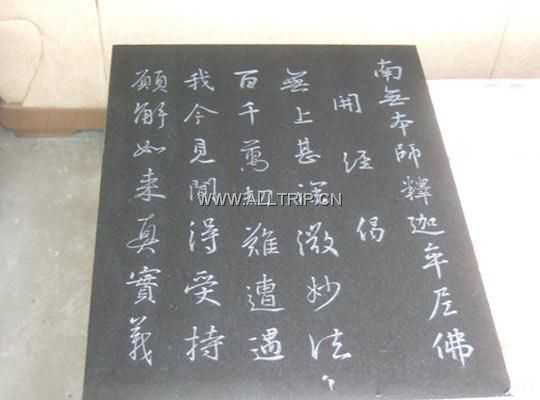 南无本師釋迦牟尼佛
開经偈
無上甚深微妙法
百千萬劫難遭遇
我今見聞得受持
願解如来真實義
WWW.ALLTRIP.CN